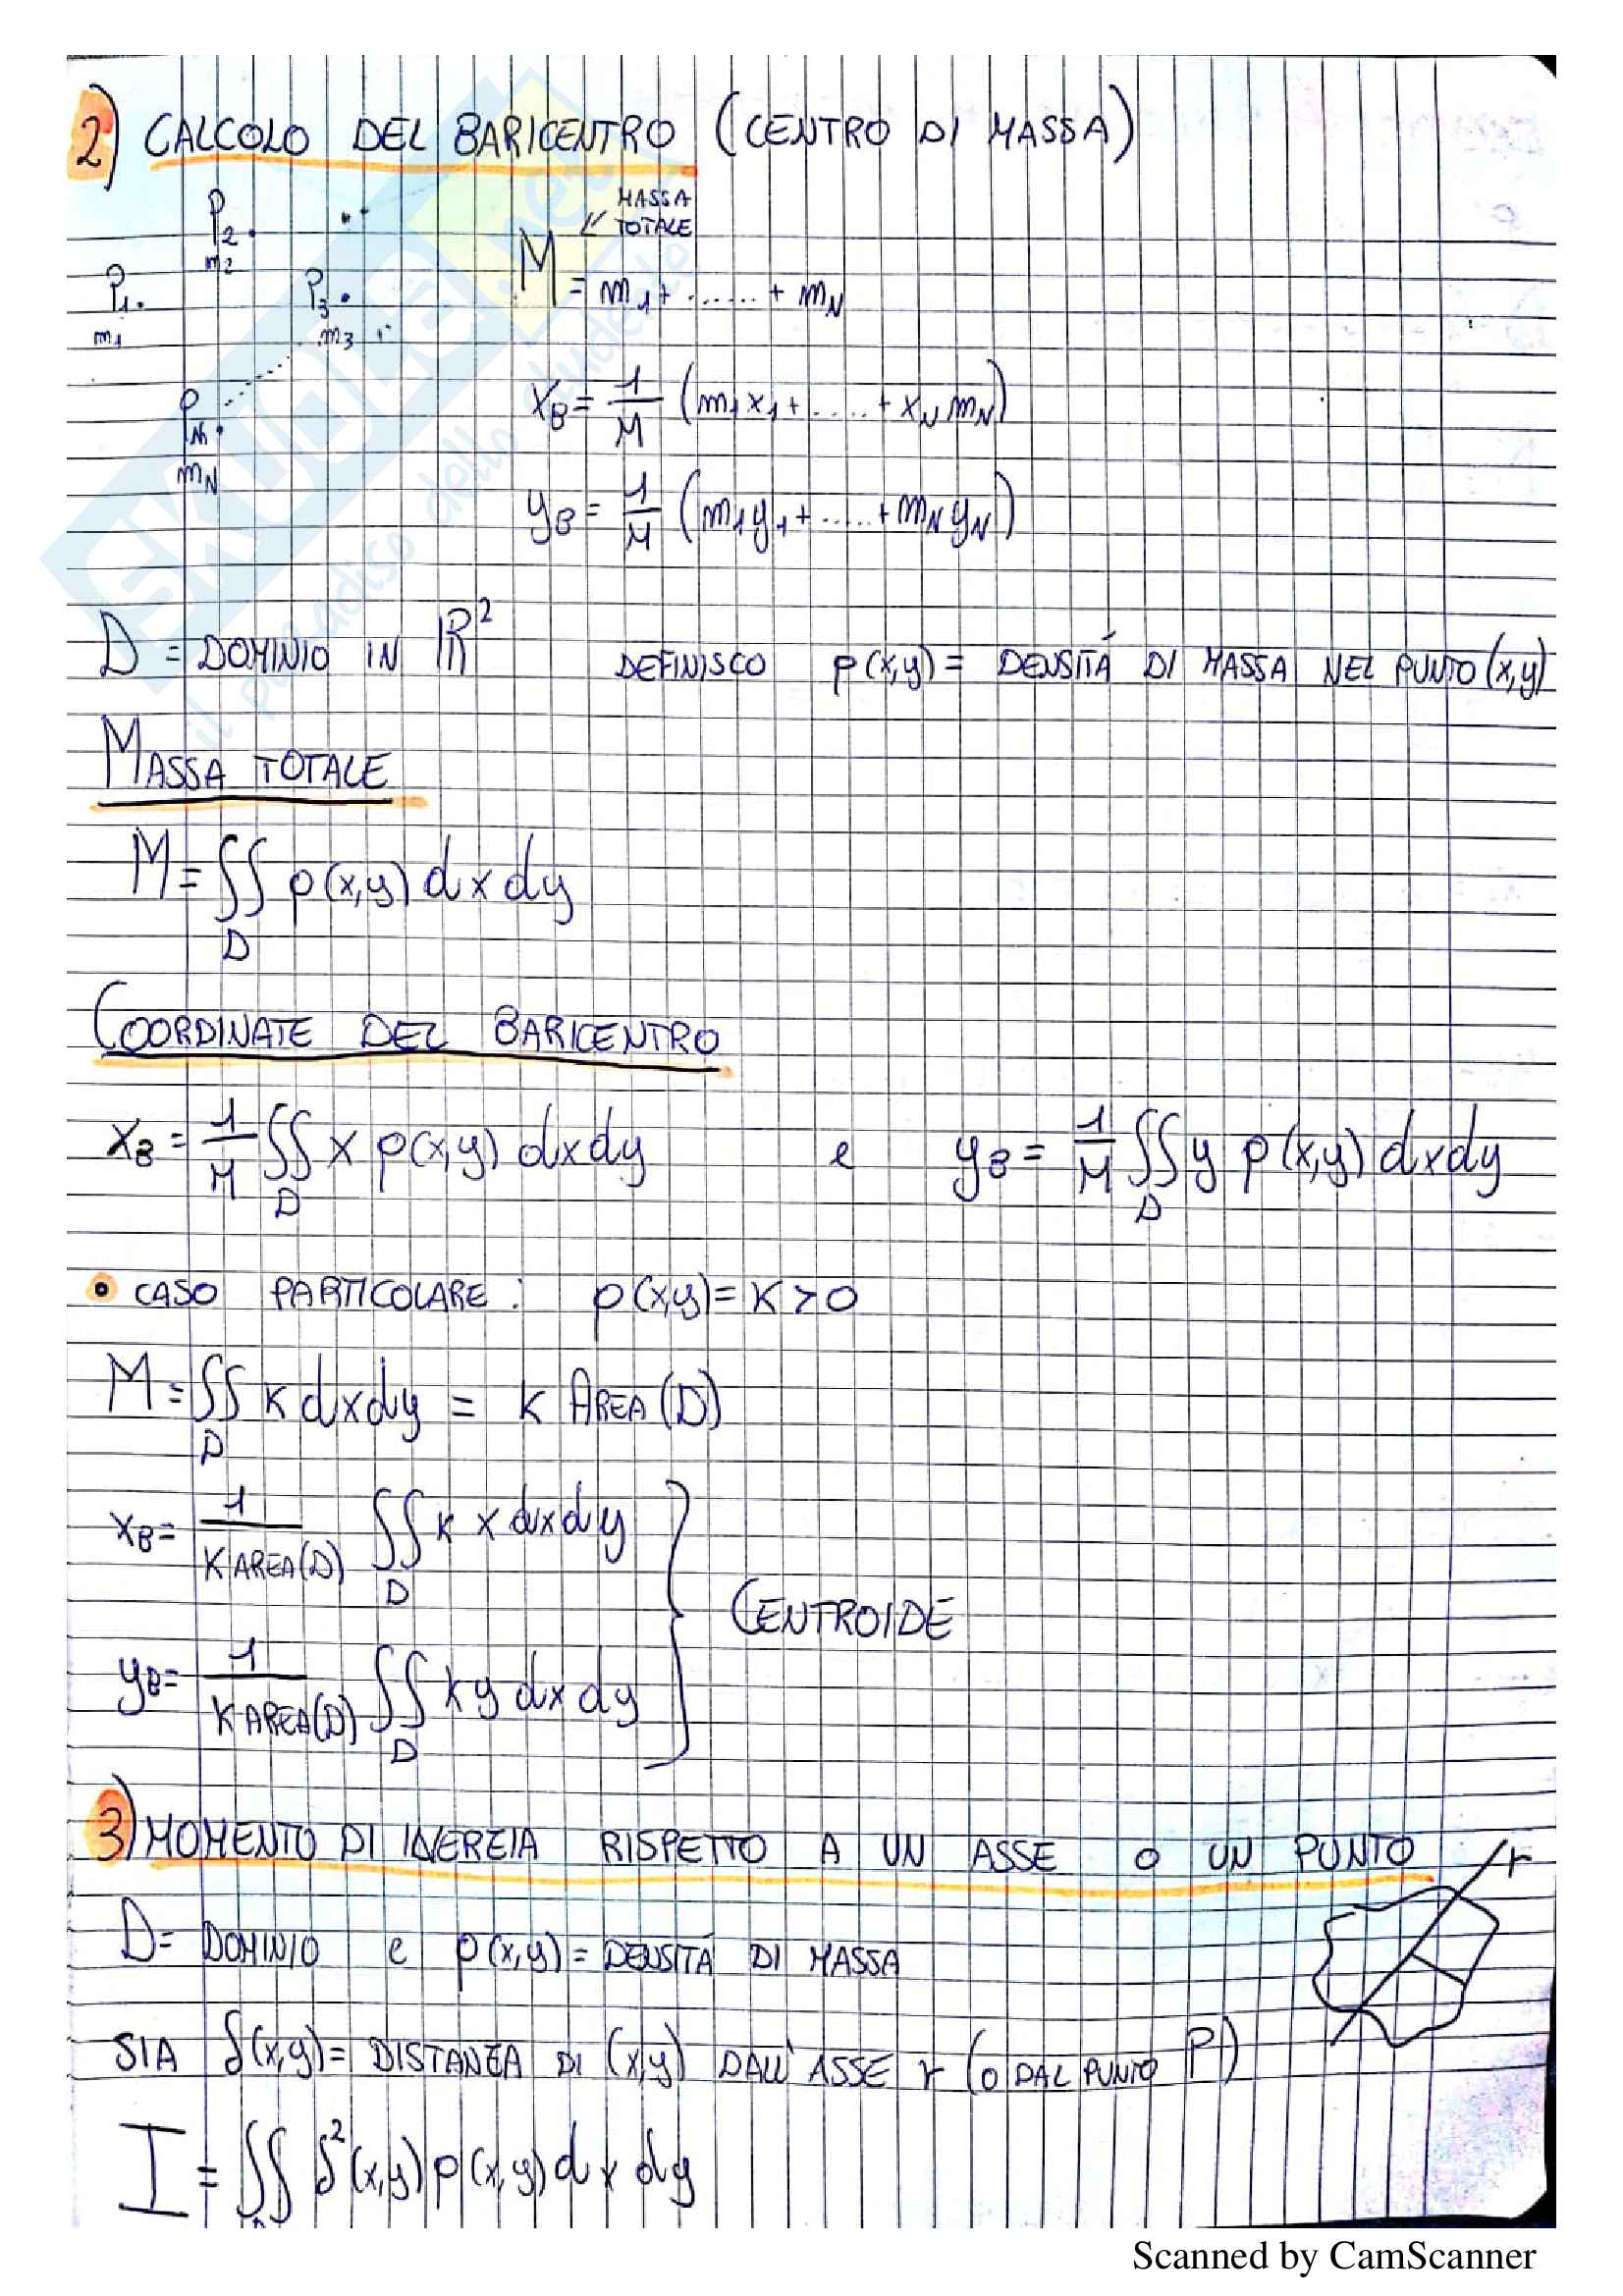 2) CALCOLO DEL BARICENTRO (CENTRO DI MASSA)
P₂
m₂
P₁
m₁
P₃
m₃
P_N
m_N
MASSA
TOTALE
M = m₁ + ...... + m_N
x_B = 1/M (m₁x₁ + ..... + x_N m_N)
y_B = 1/M (m₁y₁ + ..... + m_N y_N)
D = DOMINIO IN ℝ² DEFINISCO ρ(x,y) = DENSITÁ DI MASSA NEL PUNTO (x,y)
MASSA TOTALE
M = ∬_D ρ(x,y) dx dy
COORDINATE DEL BARICENTRO
x_B = 1/M ∬_D x ρ(x,y) dx dy e y_B = 1/M ∬_D y ρ(x,y) dx dy
• CASO PARTICOLARE: ρ(x,y) = K > 0
M = ∬_D K dx dy = K AREA(D)
x_B = 1/(K AREA(D)) ∬_D K x dx dy
CENTROIDE
y_B = 1/(K AREA(D)) ∬_D K y dx dy
3) MOMENTO DI INERZIA RISPETTO A UN ASSE O UN PUNTO
r
D = DOMINIO e ρ(x,y) = DENSITÁ DI MASSA
SIA δ(x,y) = DISTANZA DI (x,y) DALL'ASSE r (O DAL PUNTO P)
I = ∬ δ²(x,y) ρ(x,y) dx dy
SKUOLA.net
il paradiso dello studente
Scanned by CamScanner